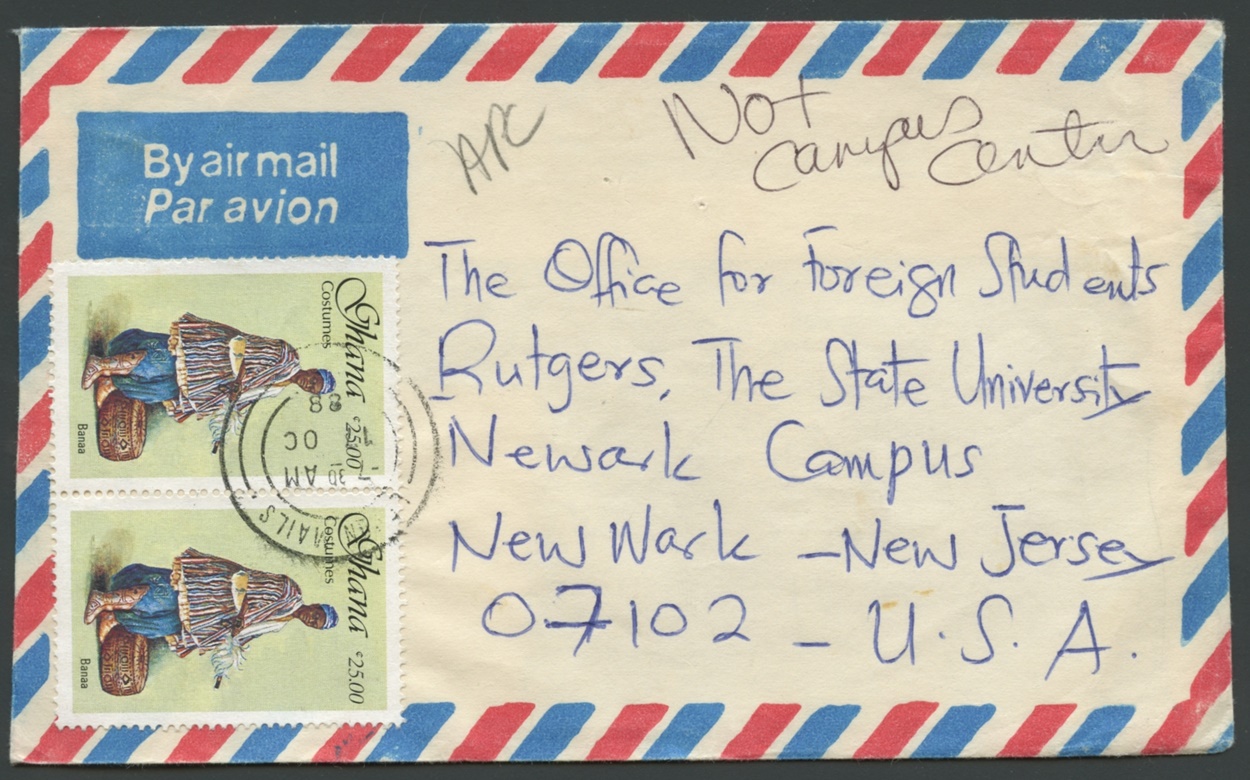 Not
campus
center
APC
By air mail
Par avion
The Office for Foreign Students
Rutgers, The State University
Newark Campus
New Wark - New Jersey
07102 - U.S.A.
Ghana
Costumes
¢25.00
Banaa
Ghana
Costumes
¢25.00
Banaa
30 AM
OC
88
MAILS